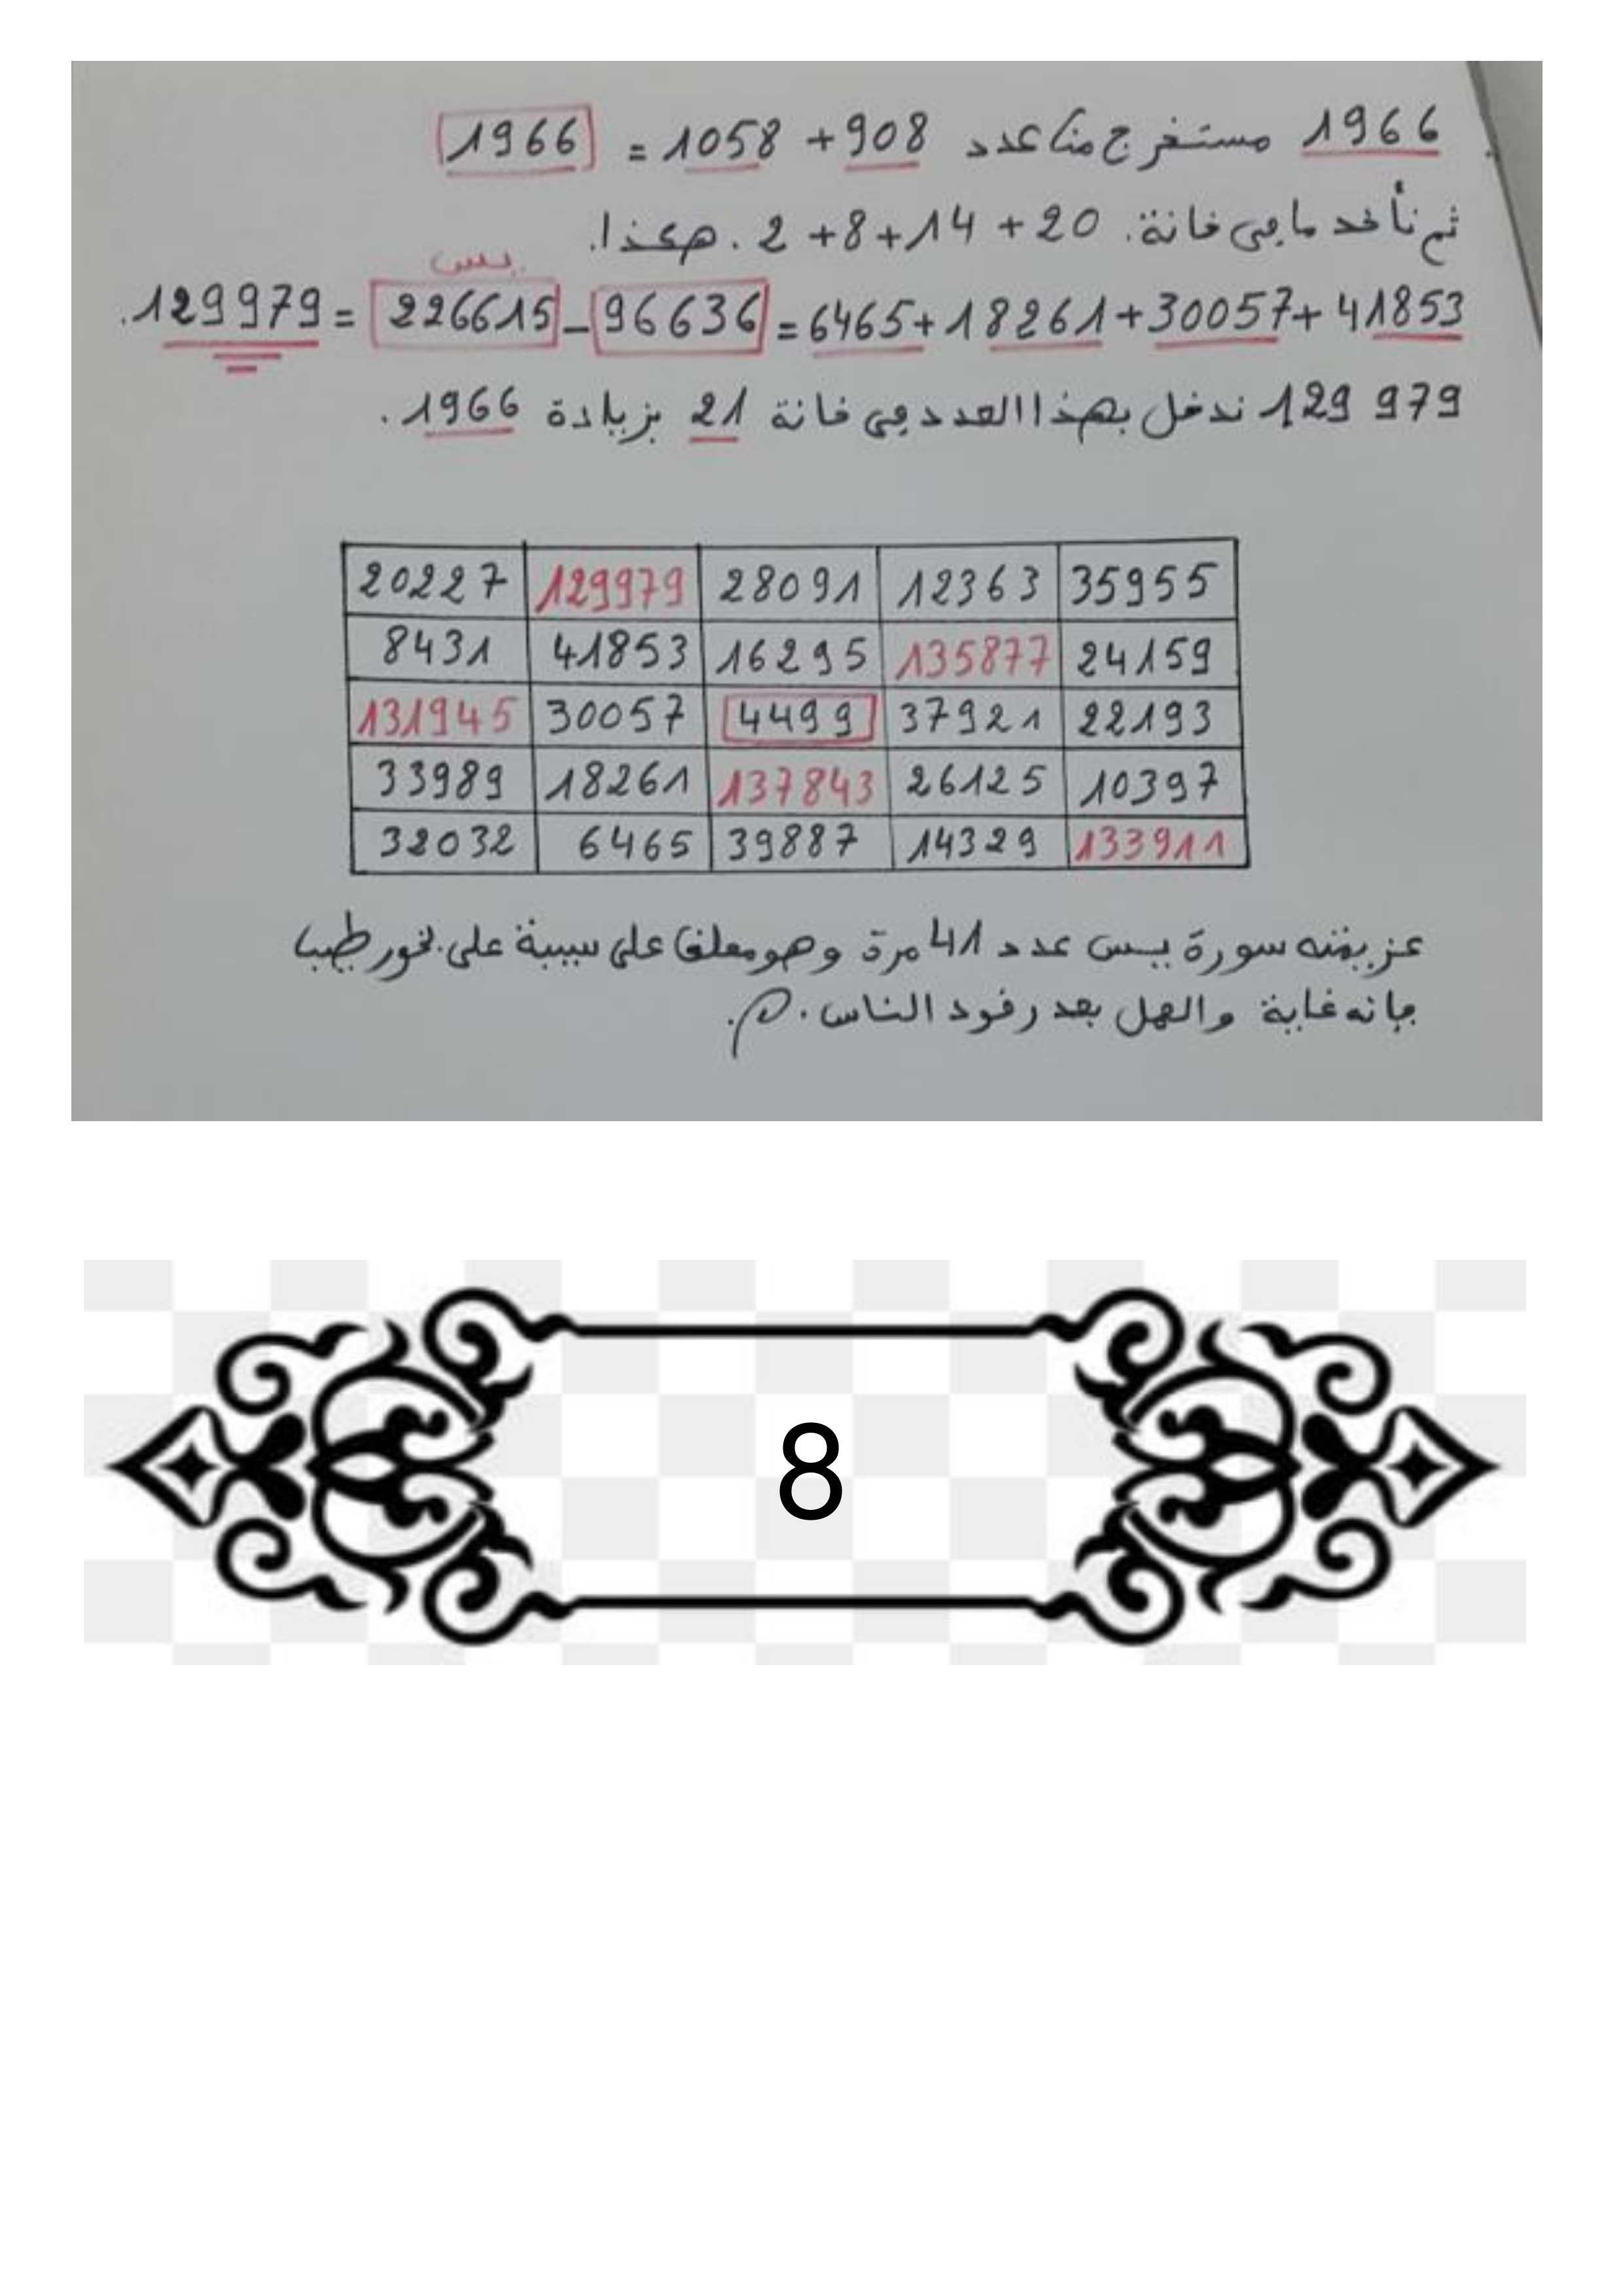 1966 مستخرج من عدد 908 + 1058 = 1966
ثم نأخد ما في خانة. 20 + 14 + 8 + 2 . هكذا.
يس
41853 + 30057 + 18261 + 6465 = 96636 – 226615 = 129979.
129 979 ندخل بهذا العدد في خانة 21 بزيادة 1966.
20227 129979 28091 12363 35955
8431 41853 16295 135877 24159
131945 30057 4499 37921 22193
33989 18261 137843 26125 10397
32032 6465 39887 14329 133911
عزيمته سورة يس عدد 41 مرة وهو معلق على سيبة على بخور طيب
فإنه غاية والعمل بعد رقود الناس.
8